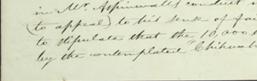 in Mr. Aspinwall's conduct
to appeal) to his sense of
to stipulate that the 10,000
by the contemplated Chihuah